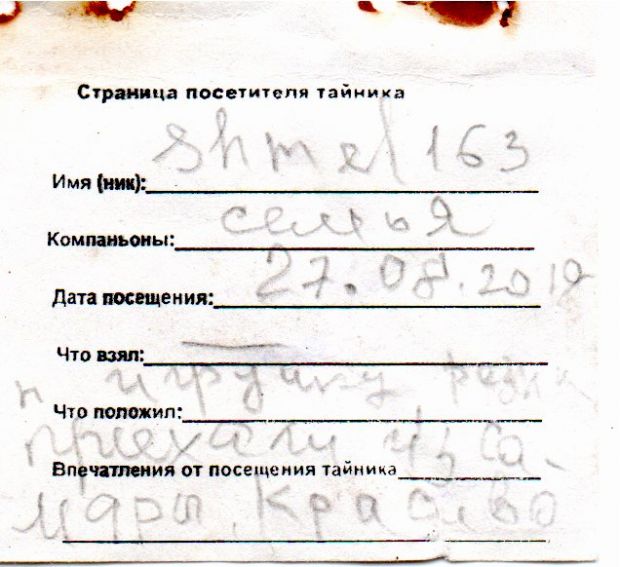 Страница посетителя тайника
shmel 163
Имя (ник):
семья
Компаньоны:
27.08.2018
Дата посещения:
Что взял:
игрушку
Что положил:
приехали из Са-
Впечатления от посещения тайника
мары, Красиво